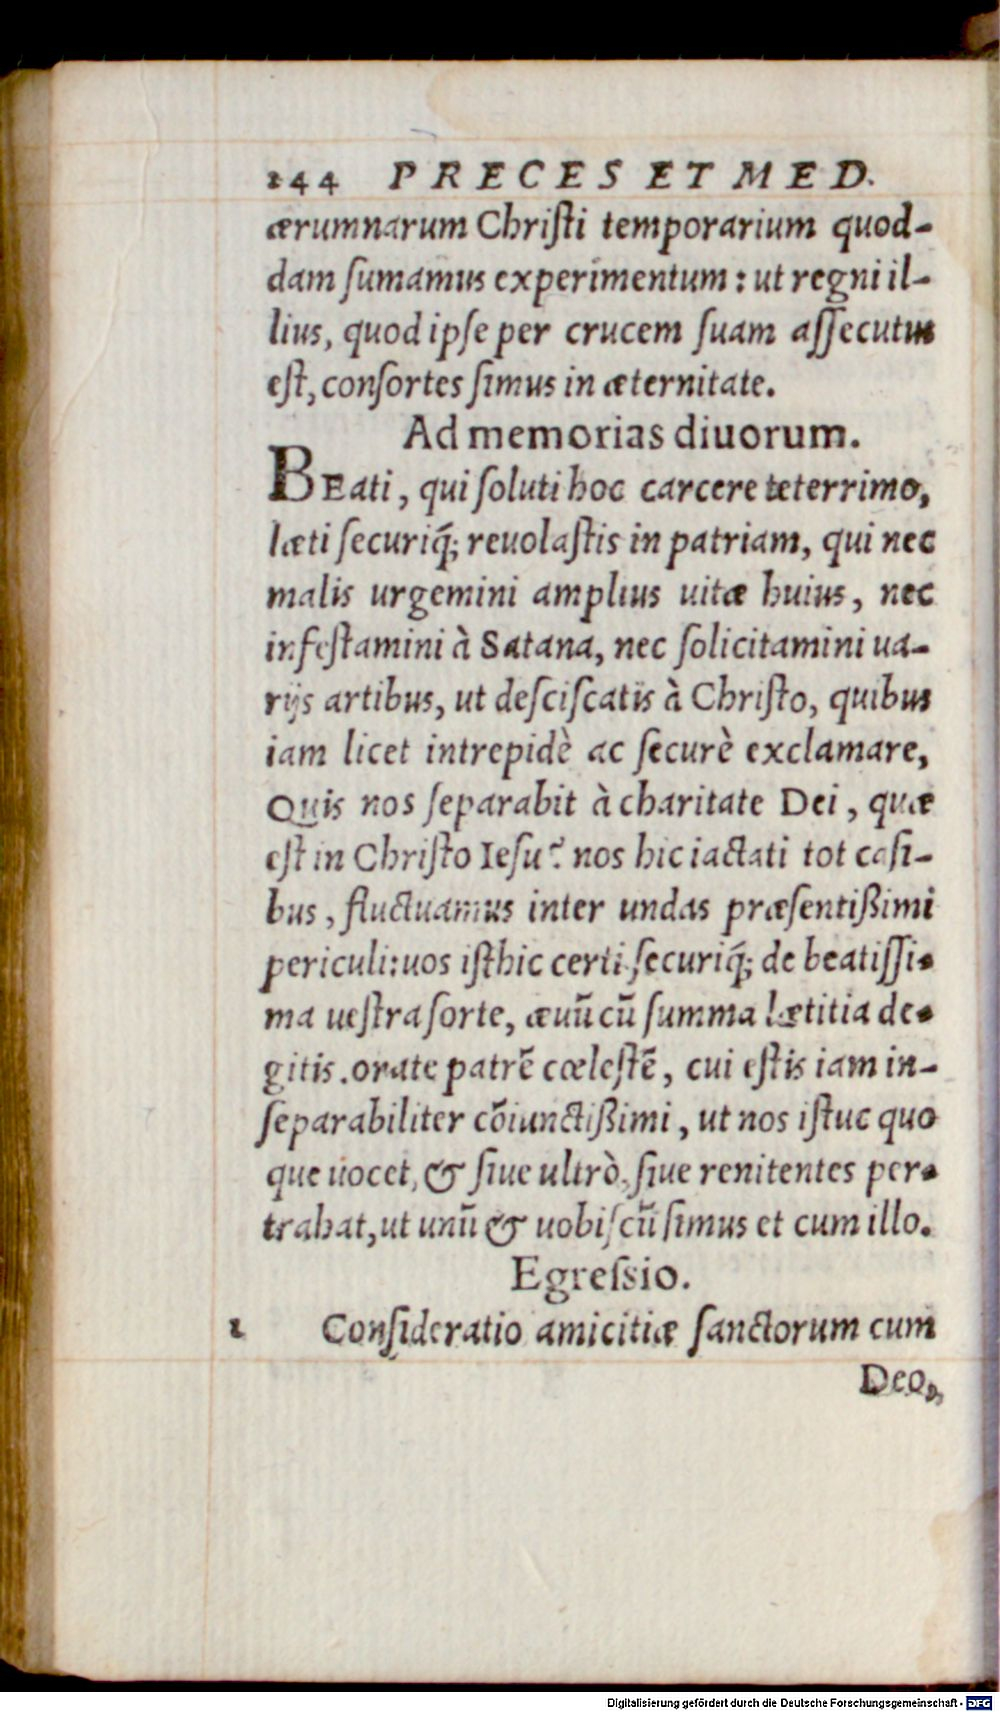 144 PRECES ET MED.
ærumnarum Chriſti temporarium quod-
dam ſumamus experimentum: ut regni il-
lius, quod ipſe per crucem ſuam aſſecutus
eſt, conſortes ſimus in æternitate.
Ad memorias diuorum.
BEati, qui ſoluti hoc carcere teterrimo,
læti ſecuriq́; reuolaſtis in patriam, qui nec
malis urgemini amplius uitæ huius, nec
infeſtamini à Satana, nec ſolicitamini ua-
rijs artibus, ut deſciſcatis à Chriſto, quibus
iam licet intrepidè ac ſecurè exclamare,
Quis nos ſeparabit à charitate Dei, quæ
eſt in Chriſto Ieſu? nos hic iactati tot caſi-
bus, fluctuamus inter undas præſentißimi
periculi: uos iſthic certi ſecuriq́; de beatiſſi-
ma ueſtra ſorte, æuũ cũ ſumma lætitia de-
gitis. orate patrẽ cœleſtẽ, cui eſtis iam in-
ſeparabiliter cõiunctißimi, ut nos iſtuc quo
que uocet, & ſiue ultrò, ſiue renitentes per-
trahat, ut unũ & uobiſcũ ſimus et cum illo.
Egreſsio.
1 Conſideratio amicitiæ ſanctorum cum
Deo,
Digitalisierung gefördert durch die Deutsche Forschungsgemeinschaft - DFG